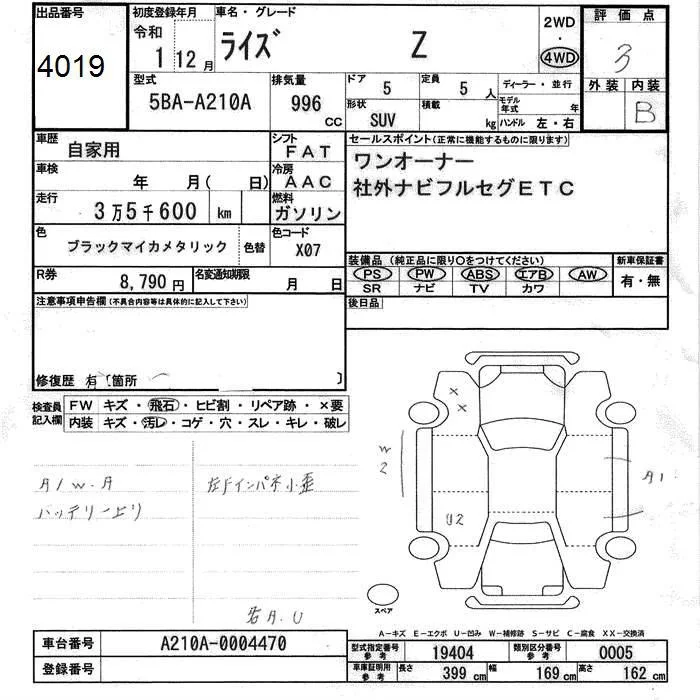 出品番号 初度登録年月 車名・グレード 2WD 評価点
4019 令和 1 12月 ライズ Z ・ 4WD 3
型式 排気量 ドア 5 定員 5人 ディーラー・並行 外装 内装
5BA-A210A 996cc 形状 SUV 積載 kg モデル年式 年 ハンドル 左・右 B
車歴 自家用 シフト FAT セールスポイント(正常に機能するものに限ります)
車検 年 月( 日) 冷房 AAC ワンオーナー
走行 3万5千600 km 燃料 ガソリン 社外ナビフルセグETC
色 ブラックマイカメタリック 色替 色コード X07
装備品 (純正品に限り〇をつけてください) 新車保証書
R券 8,790円 名変通知期限 月 日 PS PW ABS エアB AW 有・無
SR ナビ TV カワ
注意事項申告欄(不具合内容等は具体的に記入して下さい) 後日品
修復歴 有〔箇所 〕
検査員記入欄 FW キズ・飛石・ヒビ割・リペア跡・×要
内装 キズ・汚レ・コゲ・穴・スレ・キレ・破レ
X
X
W
2
A1
U2
A1 W.A 左Fインパネ小
バッテリー上り
各A.U
スペア
A-キズ E-エクボ U-凹み W-補修跡 S-サビ C-腐食 XX-交換済
車台番号 A210A-0004470 型式指定番号 参考 19404 類別区分番号 参考 0005
登録番号 車庫証明用参考 長さ 399 cm 幅 169 cm 高さ 162 cm